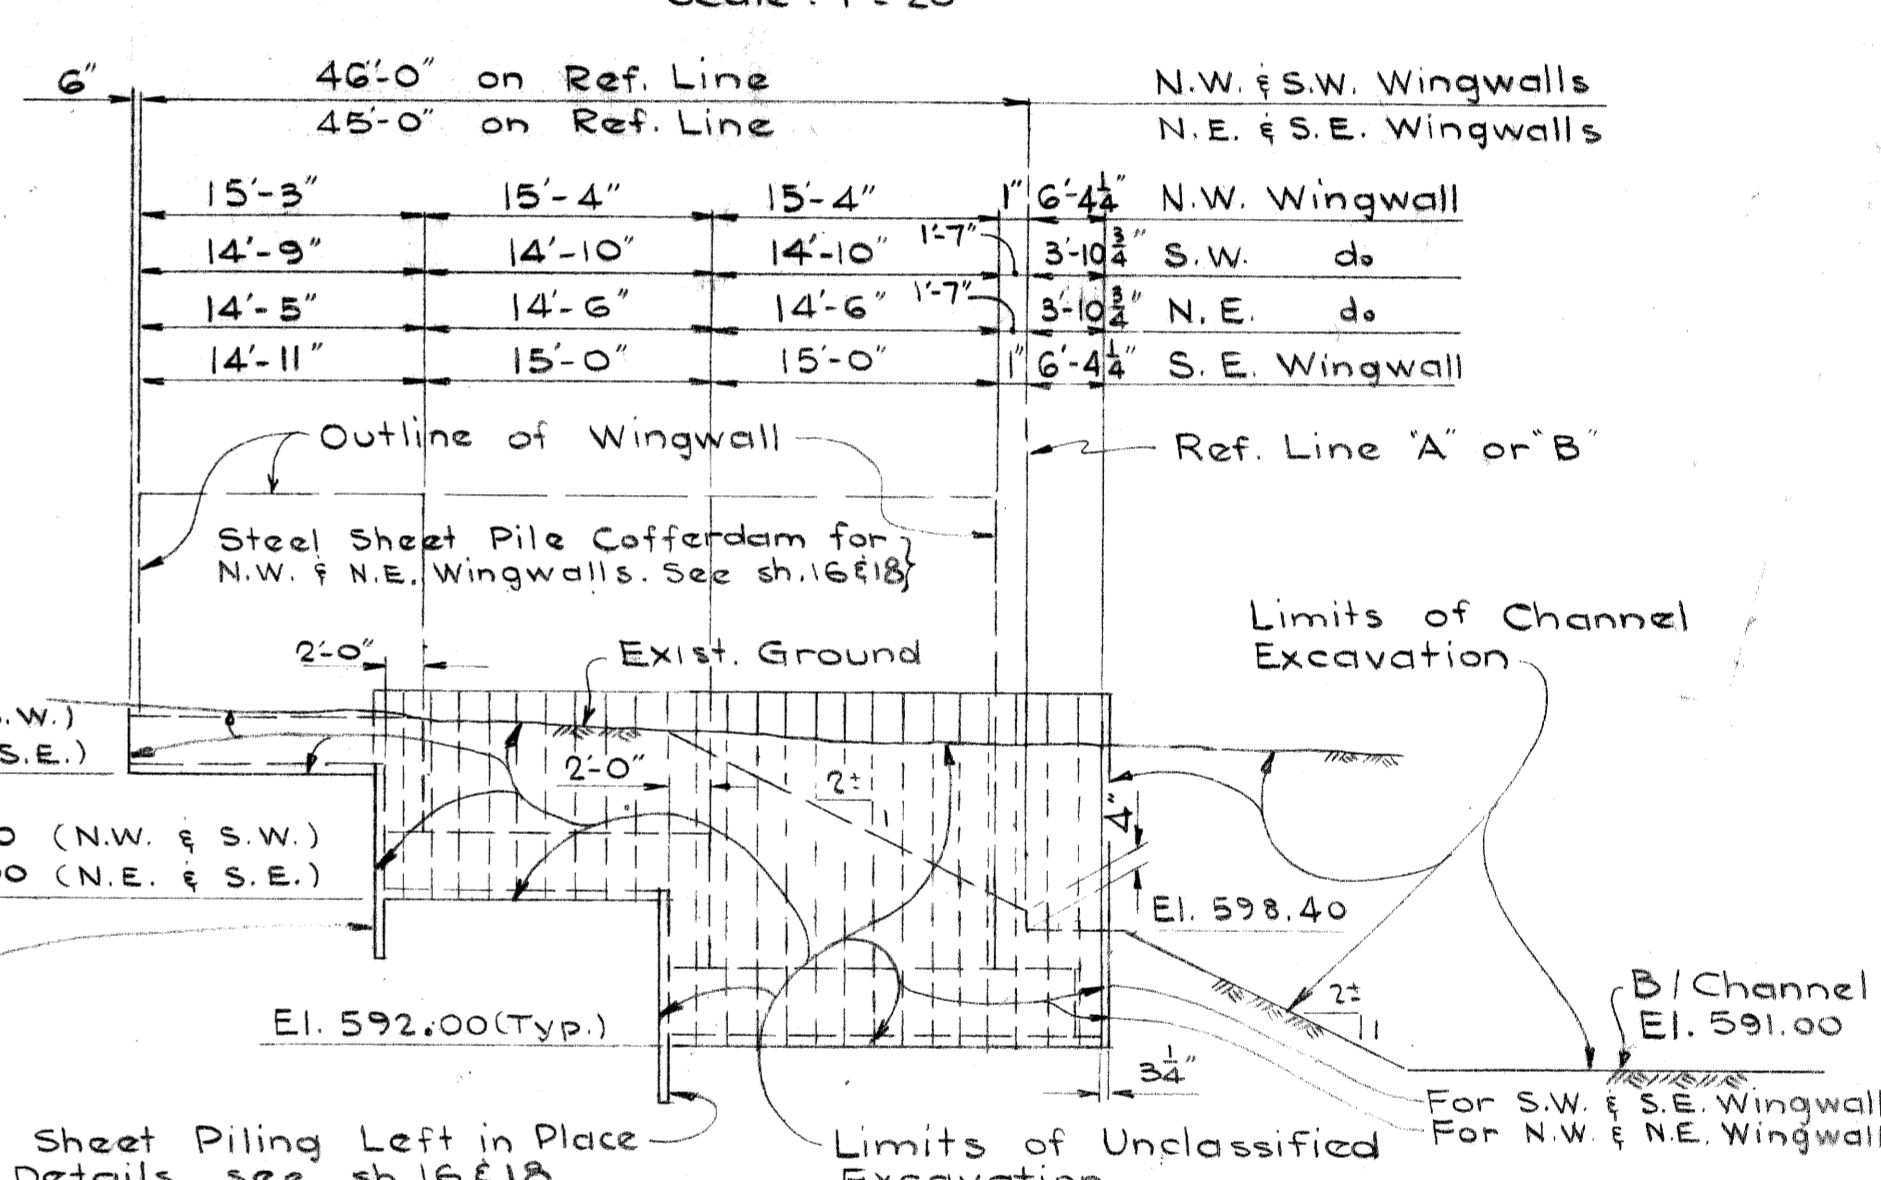 6" 46'-0" on Ref. Line N.W. & S.W. Wingwalls
45'-0" on Ref. Line N.E. & S.E. Wingwalls
15'-3" 15'-4" 15'-4" 1" 6'-4¼" N.W. Wingwall
14'-9" 14'-10" 14'-10" 1'-7" 3'-10¾" S.W. do
14'-5" 14'-6" 14'-6" 1'-7" 3'-10¾" N.E. do
14'-11" 15'-0" 15'-0" 1" 6'-4¼" S.E. Wingwall
Outline of Wingwall
Ref. Line "A" or "B"
Steel Sheet Pile Cofferdam for
N.W. & N.E. Wingwalls. See sh. 16 & 18}
Limits of Channel
Excavation
2'-0" Exist. Ground
.W.)
S.E.)
2'-0" 2± 1
4"
0 (N.W. & S.W.)
00 (N.E. & S.E.)
El. 598.40
El. 592.00 (Typ.)
2± 1
B/Channel
El. 591.00
3¼"
For S.W. & S.E. Wingwall
For N.W. & N.E. Wingwall
Sheet Piling Left in Place
Details see sh. 16 & 18
Limits of Unclassified
Excavation